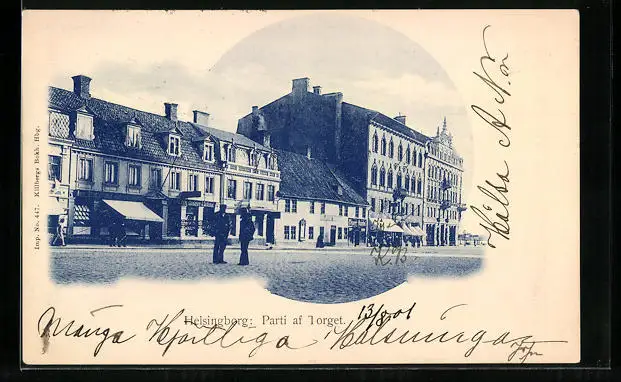 Imp. No. 447. Killbergs Bokh. Hbg.
Helsingborg: Parti af Torget.
13/8 01
Många Hjertliga Helsningar
Hälsa A